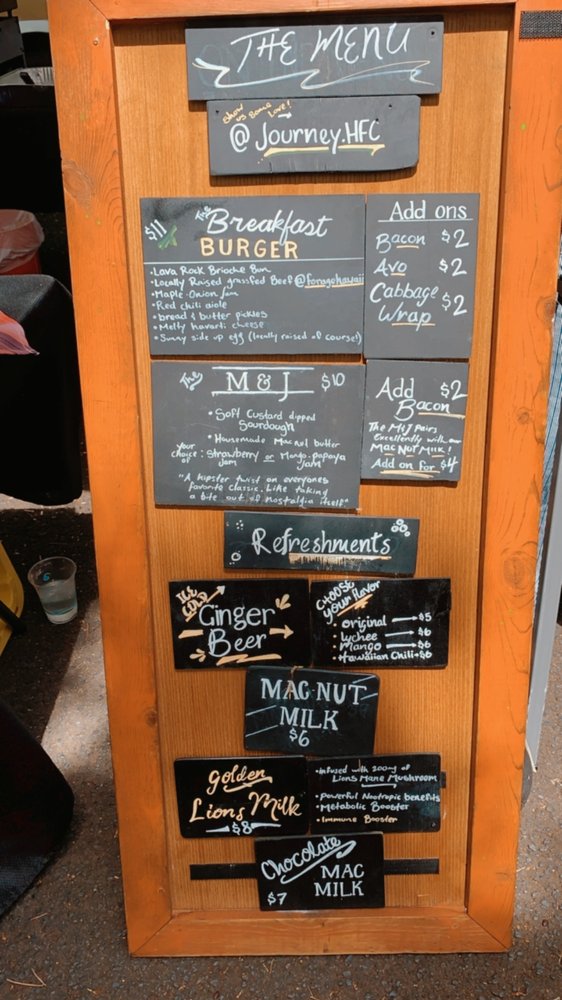 THE MENU
Show us Some Love!
@ Journey.HFC
$11 The Breakfast
BURGER
• Lava Rock Brioche Bun
• Locally Raised grassfed Beef @foragehawaii
• Maple-Onion Jam
• Red chili aiole
• bread & butter pickles
• Melty havarti cheese
• Sunny side up egg (locally raised of course!)
Add ons
Bacon $2
Avo $2
Cabbage
Wrap $2
The M & J $10
• Soft Custard dipped
Sourdough
• Housemade Mac nut butter
your choice of : Strawberry or Mango-papaya
Jam Jam
"A hipster twist on everyones
favorite classic. Like taking
a bite out of nostalgia itself"
Add $2
Bacon
The M&J Pairs
Excellently with our
MAC NUT MILK!
Add on for $4
Refreshments
ICE COLD
Ginger
Beer
CHOOSE
your flavor
• original $5
• Lychee $6
• Mango $6
• Hawaiian Chili $6
MAC NUT
MILK
$6
Golden
Lions Milk
$8
• Infused with 200mg of
Lions Mane Mushroom
• Powerful Nootropic benefits
• Metabolic Booster
• Immune Booster
Chocolate
MAC
MILK
$7